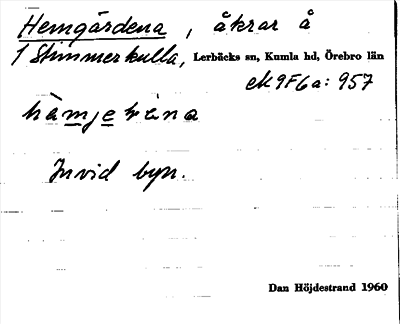 Hemgårdena, åkrar å
1 Stimmerkulla, Lerbäcks sn, Kumla hd, Örebro län
ek 9F6a: 957
Invid byn.
Dan Höjdestrand 1960